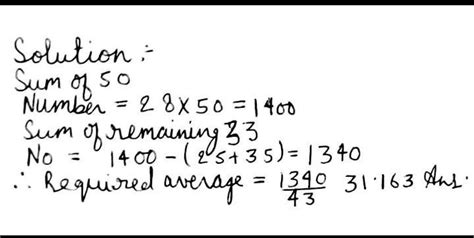 Solution :-
Sum of 50
Number = 28×50 = 1400
Sum of remaining 33
No = 1400-(25+35)=1340
∴ Required average = 1340/43 31.163 Ans.